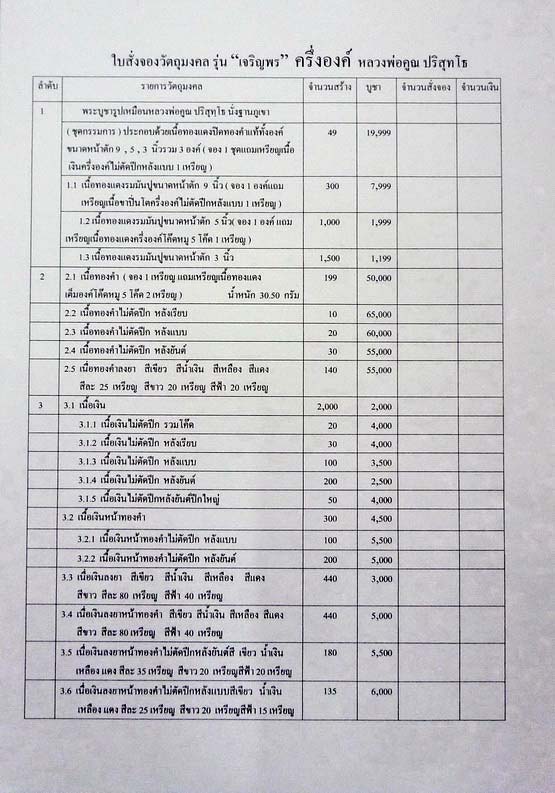 ใบสั่งจองวัตถุมงคล รุ่น “เจริญพร” ครึ่งองค์ หลวงพ่อคูณ ปริสุทโธ
ลำดับ รายการวัตถุมงคล จำนวนสร้าง บูชา จำนวนสั่งจอง จำนวนเงิน
1 พระบูชารูปเหมือนหลวงพ่อคูณ ปริสุทโธ นั่งฐานภูเขา
( ชุดกรรมการ ) ประกอบด้วยเนื้อทองแดงปิดทองคำแท้ทั้งองค์ 49 19,999
ขนาดหน้าตัก 9 , 5 , 3 นิ้วรวม 3 องค์ ( จอง 1 ชุดแถมเหรียญเนื้อ
เงินครึ่งองค์ไม่ตัดปีกหลังแบบ 1 เหรียญ )
1.1 เนื้อทองแดงรมมันปูขนาดหน้าตัก 9 นิ้ว ( จอง 1 องค์แถม 300 7,999
เหรียญเนื้ออาปาก้าครึ่งองค์ไม่ตัดปีกหลังแบบ 1 เหรียญ )
1.2 เนื้อทองแดงรมมันปูขนาดหน้าตัก 5 นิ้ว( จอง 1 องค์ แถม 1,000 1,999
เหรียญเนื้อทองแดงครึ่งองค์โค๊ดหมู 5 โค๊ด 1 เหรียญ )
1.3 เนื้อทองแดงรมมันปูขนาดหน้าตัก 3 นิ้ว 1,500 1,199
2 2.1 เนื้อทองคำ ( จอง 1 เหรียญ แถมเหรียญเนื้อทองแดง 199 50,000
เต็มองค์โค๊ดหมู 5 โค๊ด 2 เหรียญ ) น้ำหนัก 30.50 กรัม
2.2 เนื้อทองคำไม่ตัดปีก หลังเรียบ 10 65,000
2.3 เนื้อทองคำไม่ตัดปีก หลังแบบ 20 60,000
2.4 เนื้อทองคำไม่ตัดปีก หลังยันต์ 30 55,000
2.5 เนื้อทองคำลงยา สีเขียว สีน้ำเงิน สีเหลือง สีแดง 140 55,000
สีละ 25 เหรียญ สีขาว 20 เหรียญ สีฟ้า 20 เหรียญ
3 3.1 เนื้อเงิน 2,000 2,000
3.1.1 เนื้อเงินไม่ตัดปีก รวมโค๊ด 20 4,000
3.1.2 เนื้อเงินไม่ตัดปีก หลังเรียบ 30 4,000
3.1.3 เนื้อเงินไม่ตัดปีก หลังแบบ 100 3,500
3.1.4 เนื้อเงินไม่ตัดปีก หลังยันต์ 200 2,500
3.1.5 เนื้อเงินไม่ตัดปีกหลังยันต์ปีกใหญ่ 50 4,000
3.2 เนื้อเงินหน้าทองคำ 300 4,500
3.2.1 เนื้อเงินหน้าทองคำไม่ตัดปีก หลังแบบ 100 5,500
3.2.2 เนื้อเงินหน้าทองคำไม่ตัดปีก หลังยันต์ 200 5,000
3.3 เนื้อเงินลงยา สีเขียว สีน้ำเงิน สีเหลือง สีแดง 440 3,000
สีขาว สีละ 80 เหรียญ สีฟ้า 40 เหรียญ
3.4 เนื้อเงินลงยาหน้าทองคำ สีเขียว สีน้ำเงิน สีเหลือง สีแดง 440 5,000
สีขาว สีละ 80 เหรียญ สีฟ้า 40 เหรียญ
3.5 เนื้อเงินลงยาหน้าทองคำไม่ตัดปีกหลังยันต์สี เขียว น้ำเงิน 180 5,500
เหลือง แดง สีละ 35 เหรียญ สีขาว 20 เหรียญสีฟ้า 20 เหรียญ
3.6 เนื้อเงินลงยาหน้าทองคำไม่ตัดปีกหลังแบบสีเขียว น้ำเงิน 135 6,000
เหลือง แดง สีละ 25 เหรียญ สีขาว 20 เหรียญสีฟ้า 15 เหรียญ